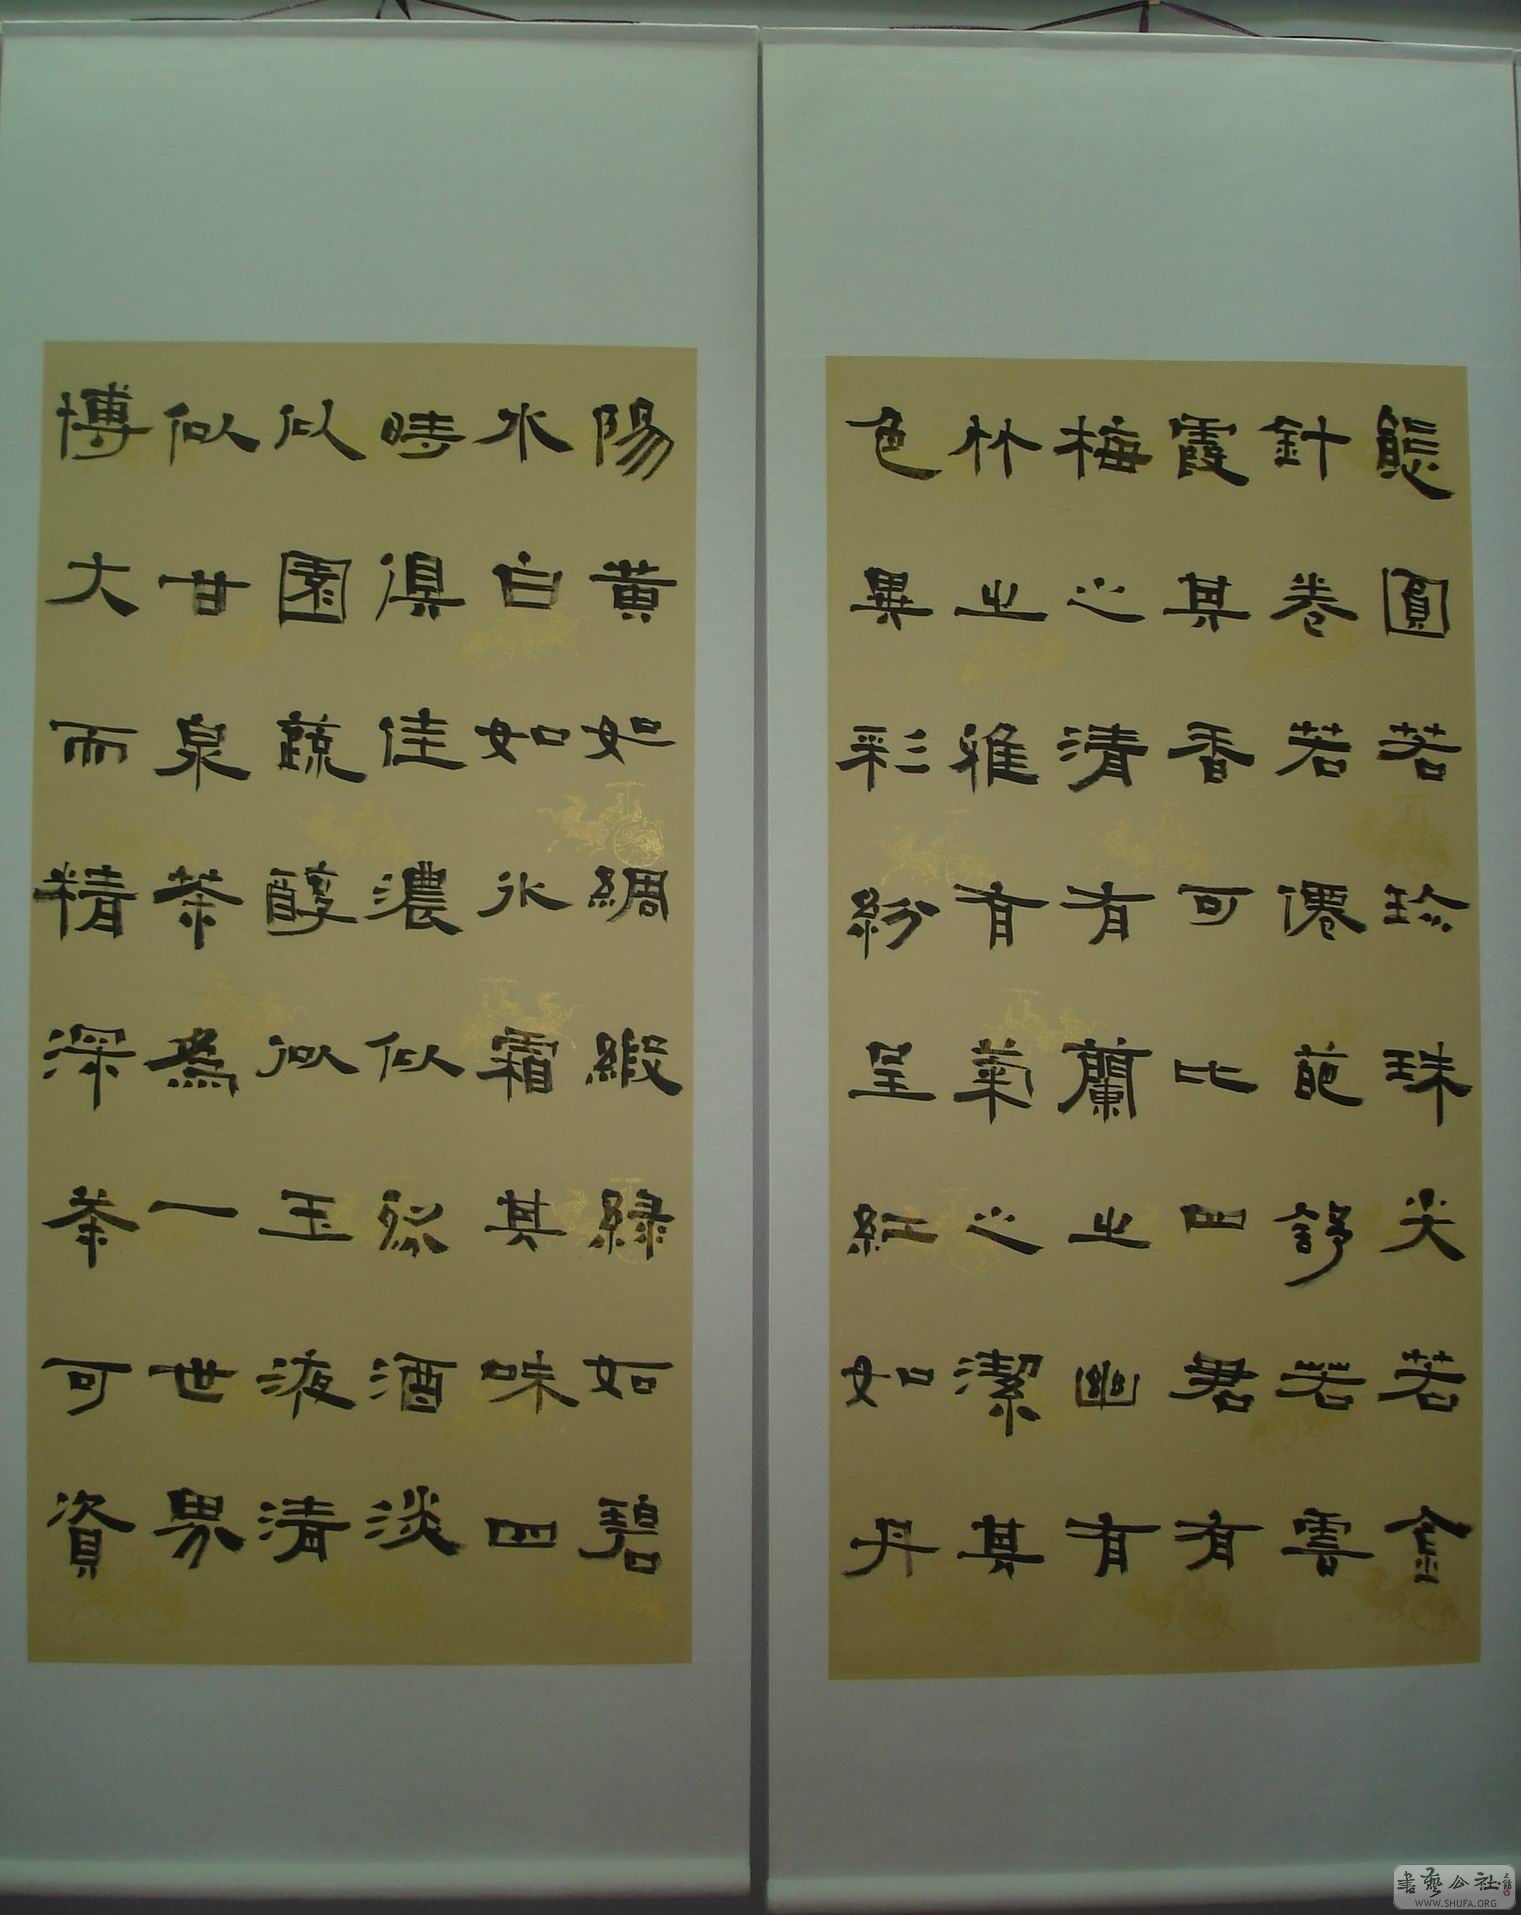 態圓若珍珠尖若金
針卷若僊葩舒若雲
霞其香可比四君有
梅之清有蘭之幽有
林之雅有菊之潔其
色異彩紛呈紅如丹
陽黃如綢緞綠如碧
水白如冰霜其味四
時俱佳濃似烈酒淡
似園蔬醇似玉液清
似甘泉茶為一世界
博大而精深茶可資
書藝公社
WWW.SHUFA.ORG